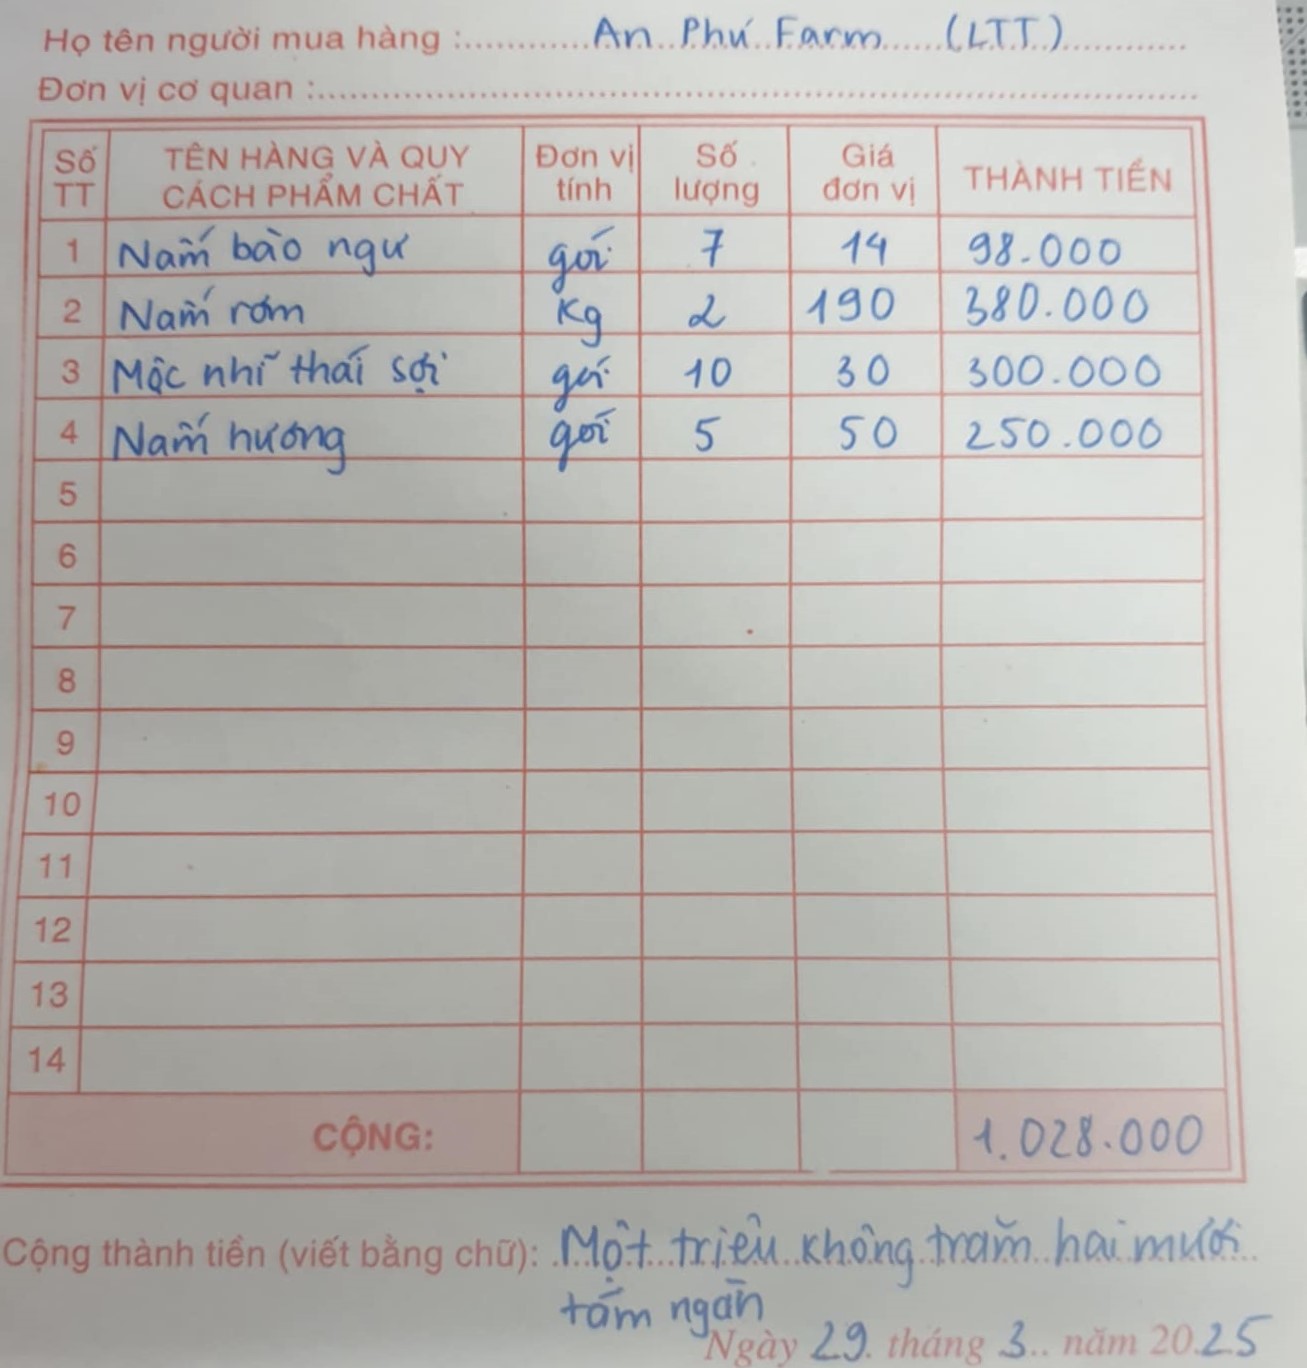 Họ tên người mua hàng : An Phú Farm (LTT)
Đơn vị cơ quan :
Số TT TÊN HÀNG VÀ QUY CÁCH PHẨM CHẤT Đơn vị tính Số lượng Giá đơn vị THÀNH TIỀN
1 Nấm bào ngư gói 7 14 98.000
2 Nấm rơm Kg 2 190 380.000
3 Mộc nhĩ thái sợi gói 10 30 300.000
4 Nấm hương gói 5 50 250.000
5
6
7
8
9
10
11
12
13
14
CỘNG: 1.028.000
Cộng thành tiền (viết bằng chữ): Một triệu không trăm hai mươi
tám ngàn
Ngày 29 tháng 3 năm 2025